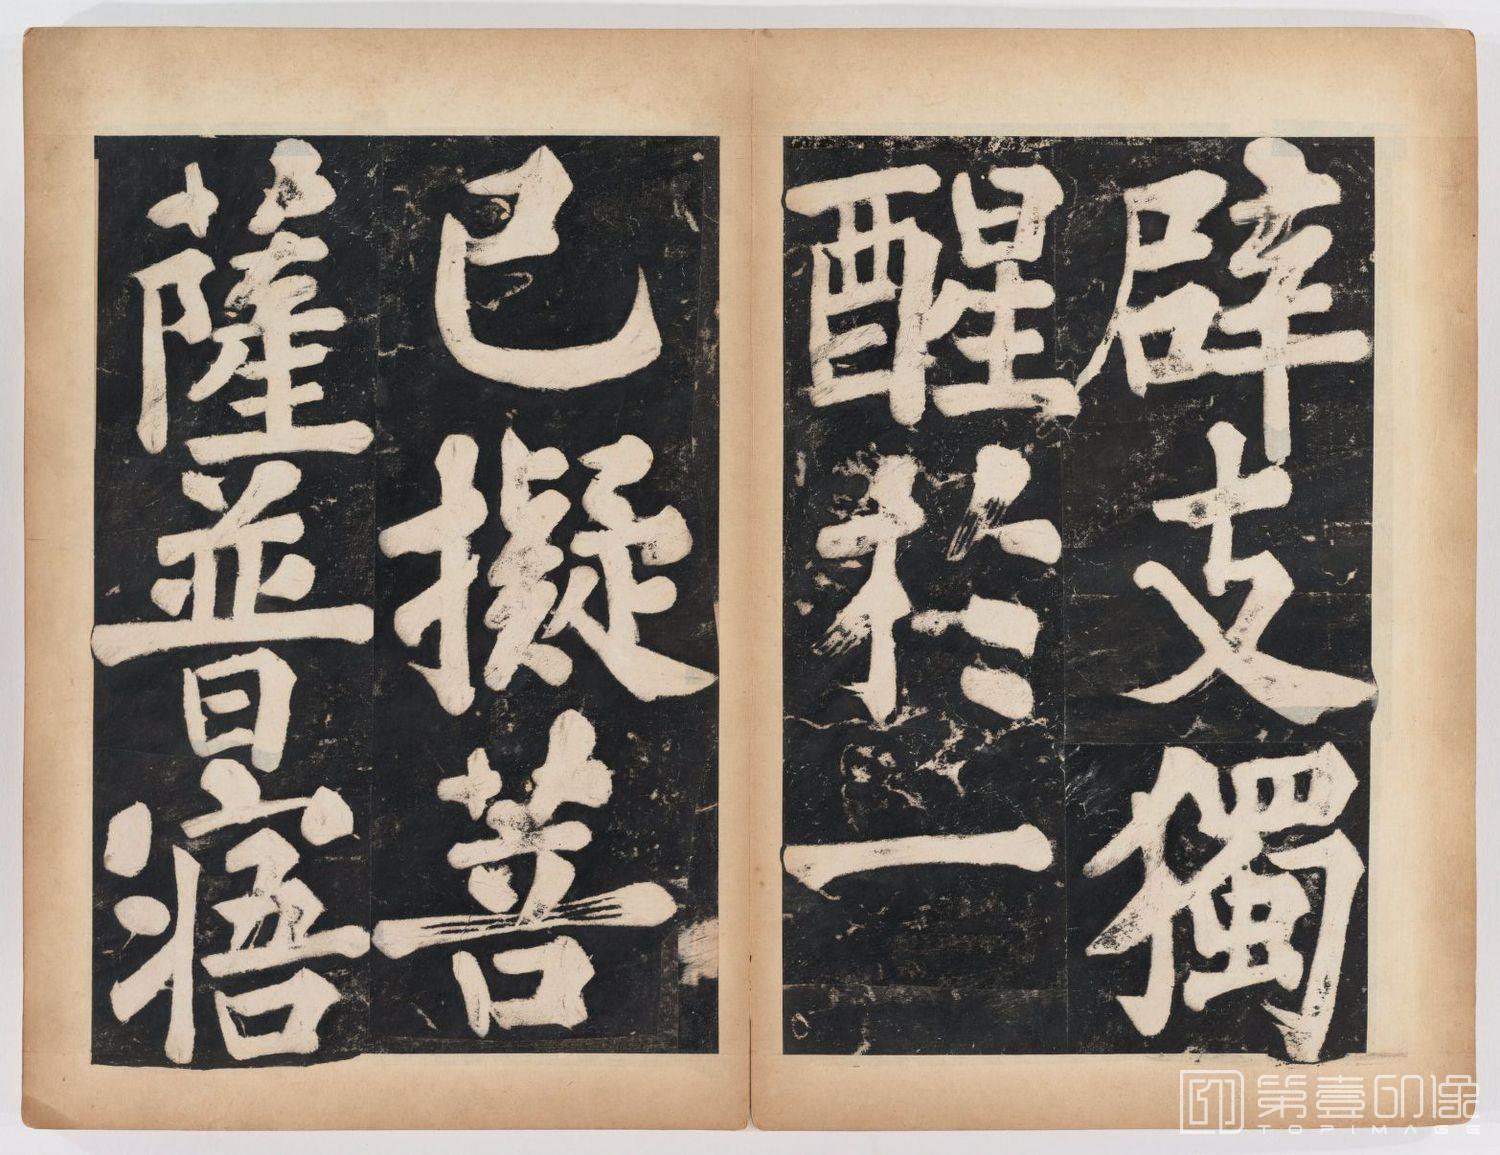 辟支獨
醒於一
已擬菩
薩普寤
第壹印像
TOPIMAGE